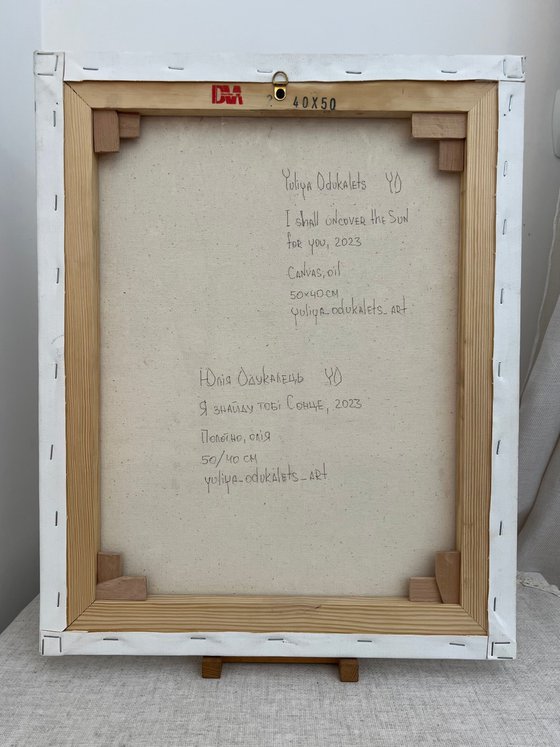 DM 40X50
Yuliya Odukalets YO
I shall uncover the Sun
for you, 2023
Canvas, oil
50x40 cm
yuliya_odukalets_art
Юлія Одукалець YO
Я знайду тобі Сонце, 2023
Полотно, олія
50/40 см
yuliya_odukalets_art